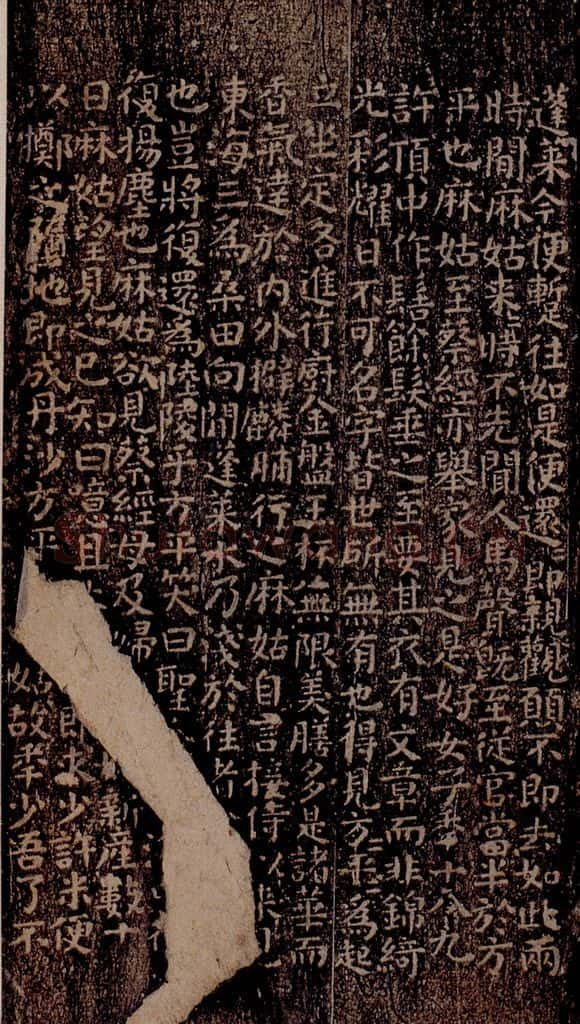 蓬萊今便蹔往如是便還=即親觀願不即去如此兩
時間麻姑来=時不先聞人馬聲既至從官當半於方
平也麻姑至蔡經亦舉家見之是好女子年十八九
許頂中作髻餘髮垂之至要其衣有文章而非錦綺
光彩耀日不可名字皆世所無有也得見方平=為起
立坐定各進行廚金盤玉杯無限美膳多是諸華而
香氣達於內外擗麟脯行之麻姑自言接侍以来見
東海三為桑田向間蓬萊水乃淺於往者
也豈將復還為陸陵乎方平笑曰聖
復揚塵也麻姑欲見蔡經母及婦新產數十
日麻姑望見之已知曰噫且即求少許米便
以擲之墮地即成丹沙方平姑故年少吾了不